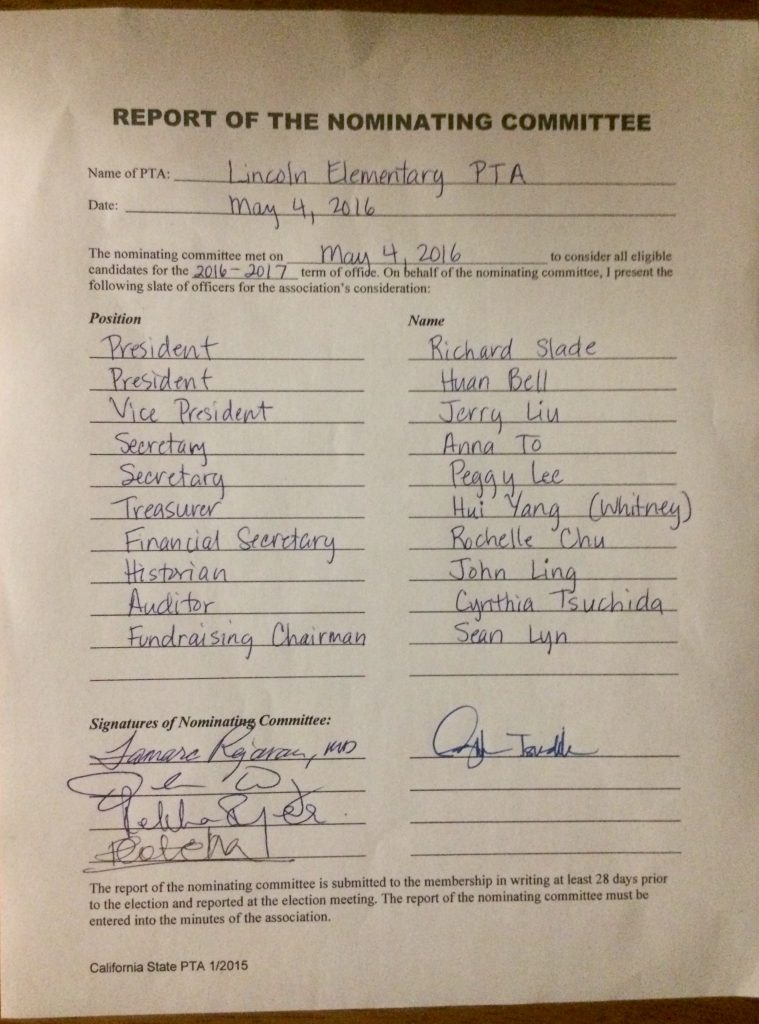 REPORT OF THE NOMINATING COMMITTEE
Name of PTA: Lincoln Elementary PTA
Date: May 4, 2016
The nominating committee met on May 4, 2016 to consider all eligible
candidates for the 2016-2017 term of office. On behalf of the nominating committee, I present the
following slate of officers for the association's consideration:
Position Name
President Richard Slade
President Huan Bell
Vice President Jerry Liu
Secretary Anna To
Secretary Peggy Lee
Treasurer Hui Yang (Whitney)
Financial Secretary Rochelle Chu
Historian John Ling
Auditor Cynthia Tsuchida
Fundraising Chairman Sean Lyn
Signatures of Nominating Committee:
MD
The report of the nominating committee is submitted to the membership in writing at least 28 days prior
to the election and reported at the election meeting. The report of the nominating committee must be
entered into the minutes of the association.
California State PTA 1/2015